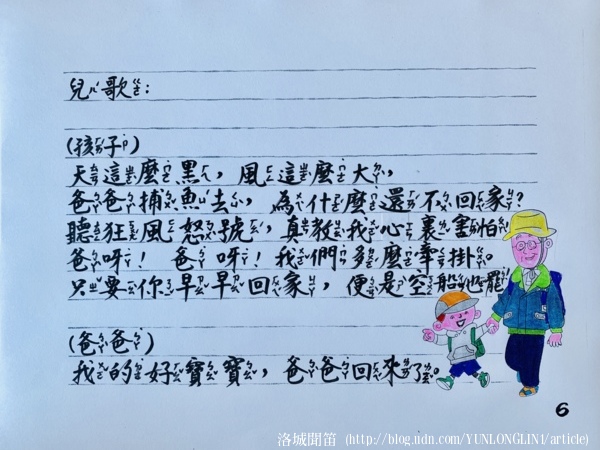 兒歌:
(孩子)
天這麼黑,風這麼大,
爸爸捕魚去,為什麼還不回家?
聽狂風怒號,真教我心裏害怕。
爸呀!爸呀!我們多麼牽掛。
只要你早早回家,便是空船也罷
(爸爸)
我的好寶寶,爸爸回來了。
6
洛城聞笛 (http://blog.udn.com/YUNLONGLIN1/article)